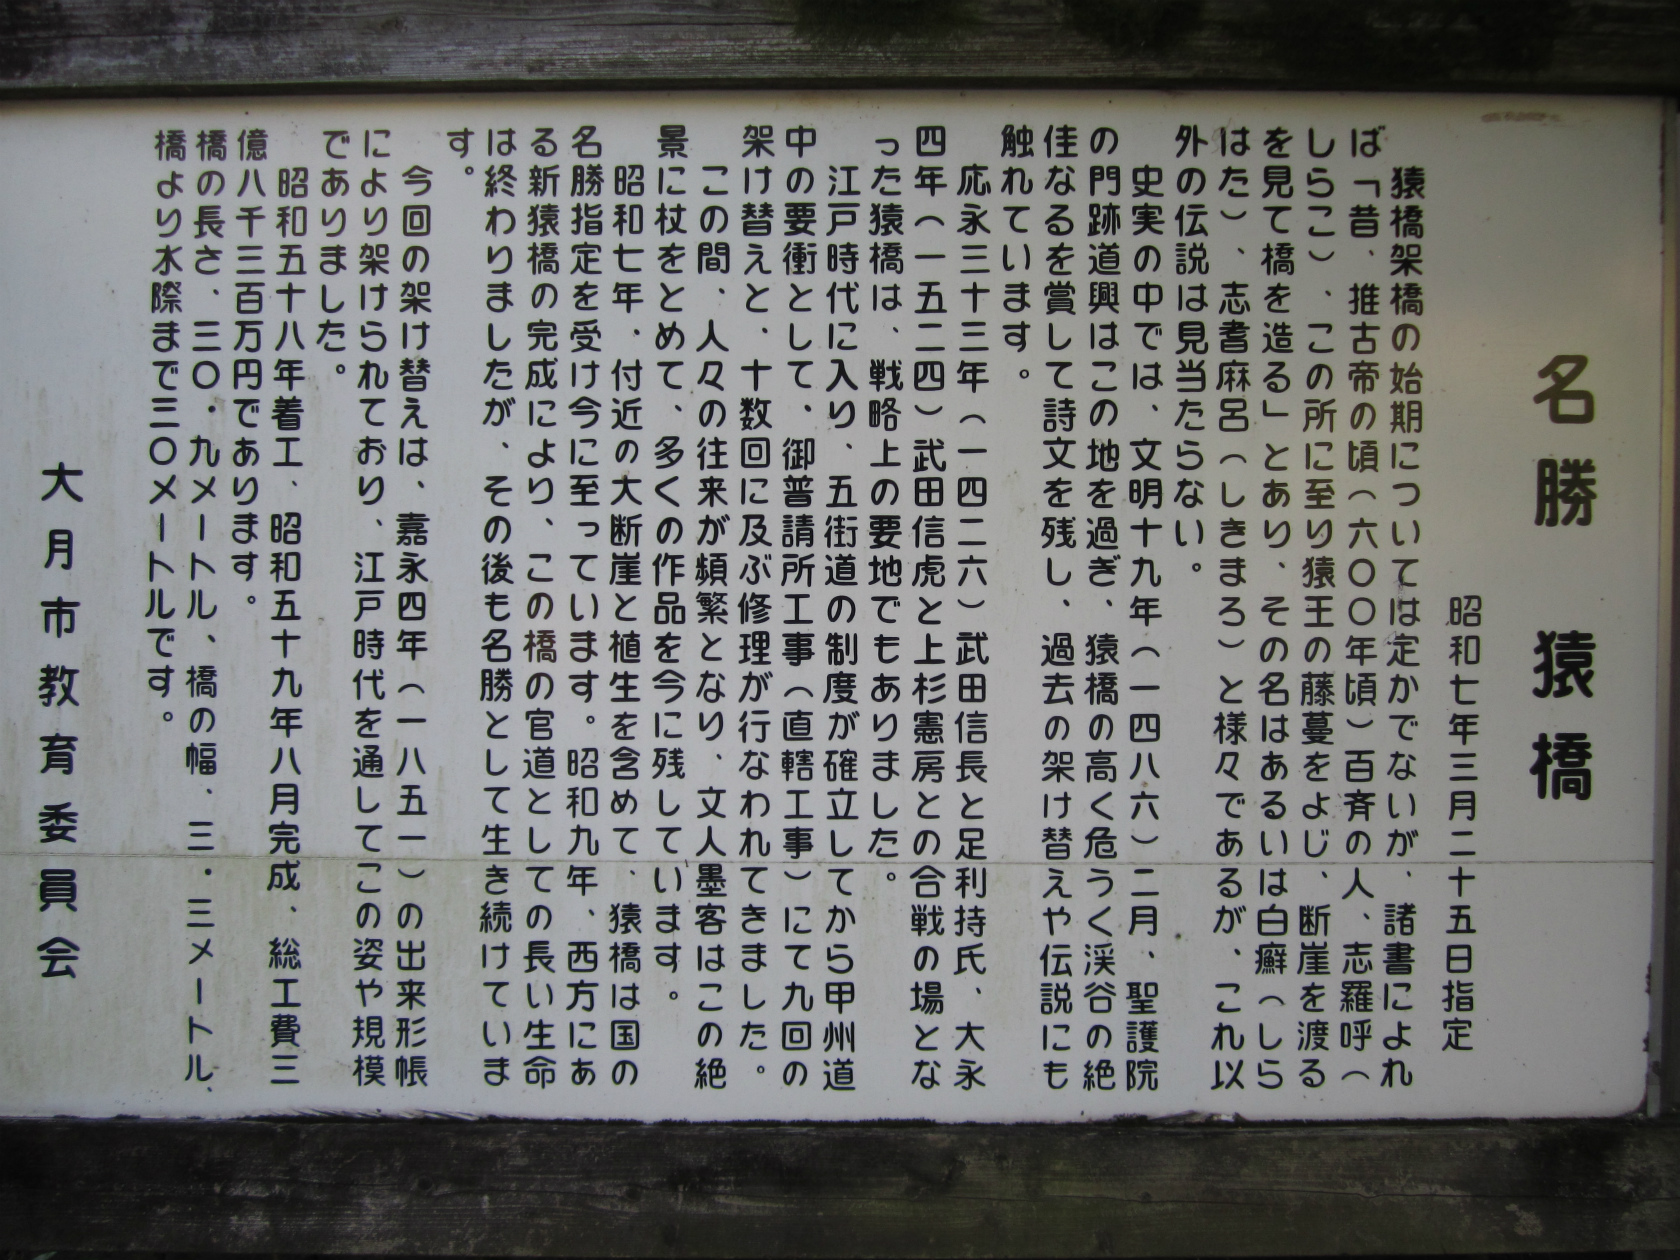 名勝　猿橋
昭和七年三月二十五日指定
猿橋架橋の始期については定かでないが、諸書によれ
ば「昔、推古帝の頃（六〇〇年頃）百斉の人、志羅呼（
しらこ）、この所に至り猿王の藤蔓をよじ、断崖を渡る
を見て橋を造る」とあり、その名はあるいは白癬（しら
はた）、志耆麻呂（しきまろ）と様々であるが、これ以
外の伝説は見当たらない。
史実の中では、文明十九年（一四八六）二月、聖護院
の門跡道興はこの地を過ぎ、猿橋の高く危うく渓谷の絶
佳なるを賞して詩文を残し、過去の架け替えや伝説にも
触れています。
応永三十三年（一四二六）武田信長と足利持氏、大永
四年（一五二四）武田信虎と上杉憲房との合戦の場とな
った猿橋は、戦略上の要地でもありました。
江戸時代に入り、五街道の制度が確立してから甲州道
中の要衝として、御普請所工事（直轄工事）にて九回の
架け替えと、十数回に及ぶ修理が行なわれてきました。
この間、人々の往来が頻繁となり、文人墨客はこの絶
景に杖をとめて、多くの作品を今に残しています。
昭和七年、付近の大断崖と植生を含めて、猿橋は国の
名勝指定を受け今に至っています。昭和九年、西方にあ
る新猿橋の完成により、この橋の官道としての長い生命
は終わりましたが、その後も名勝として生き続けていま
す。
今回の架け替えは、嘉永四年（一八五一）の出来形帳
により架けられており、江戸時代を通してこの姿や規模
でありました。
昭和五十八年着工、昭和五十九年八月完成、総工費三
億八千三百万円であります。
橋の長さ、三〇・九メートル、橋の幅、三・三メートル、
橋より水際まで三〇メートルです。
大月市教育委員会